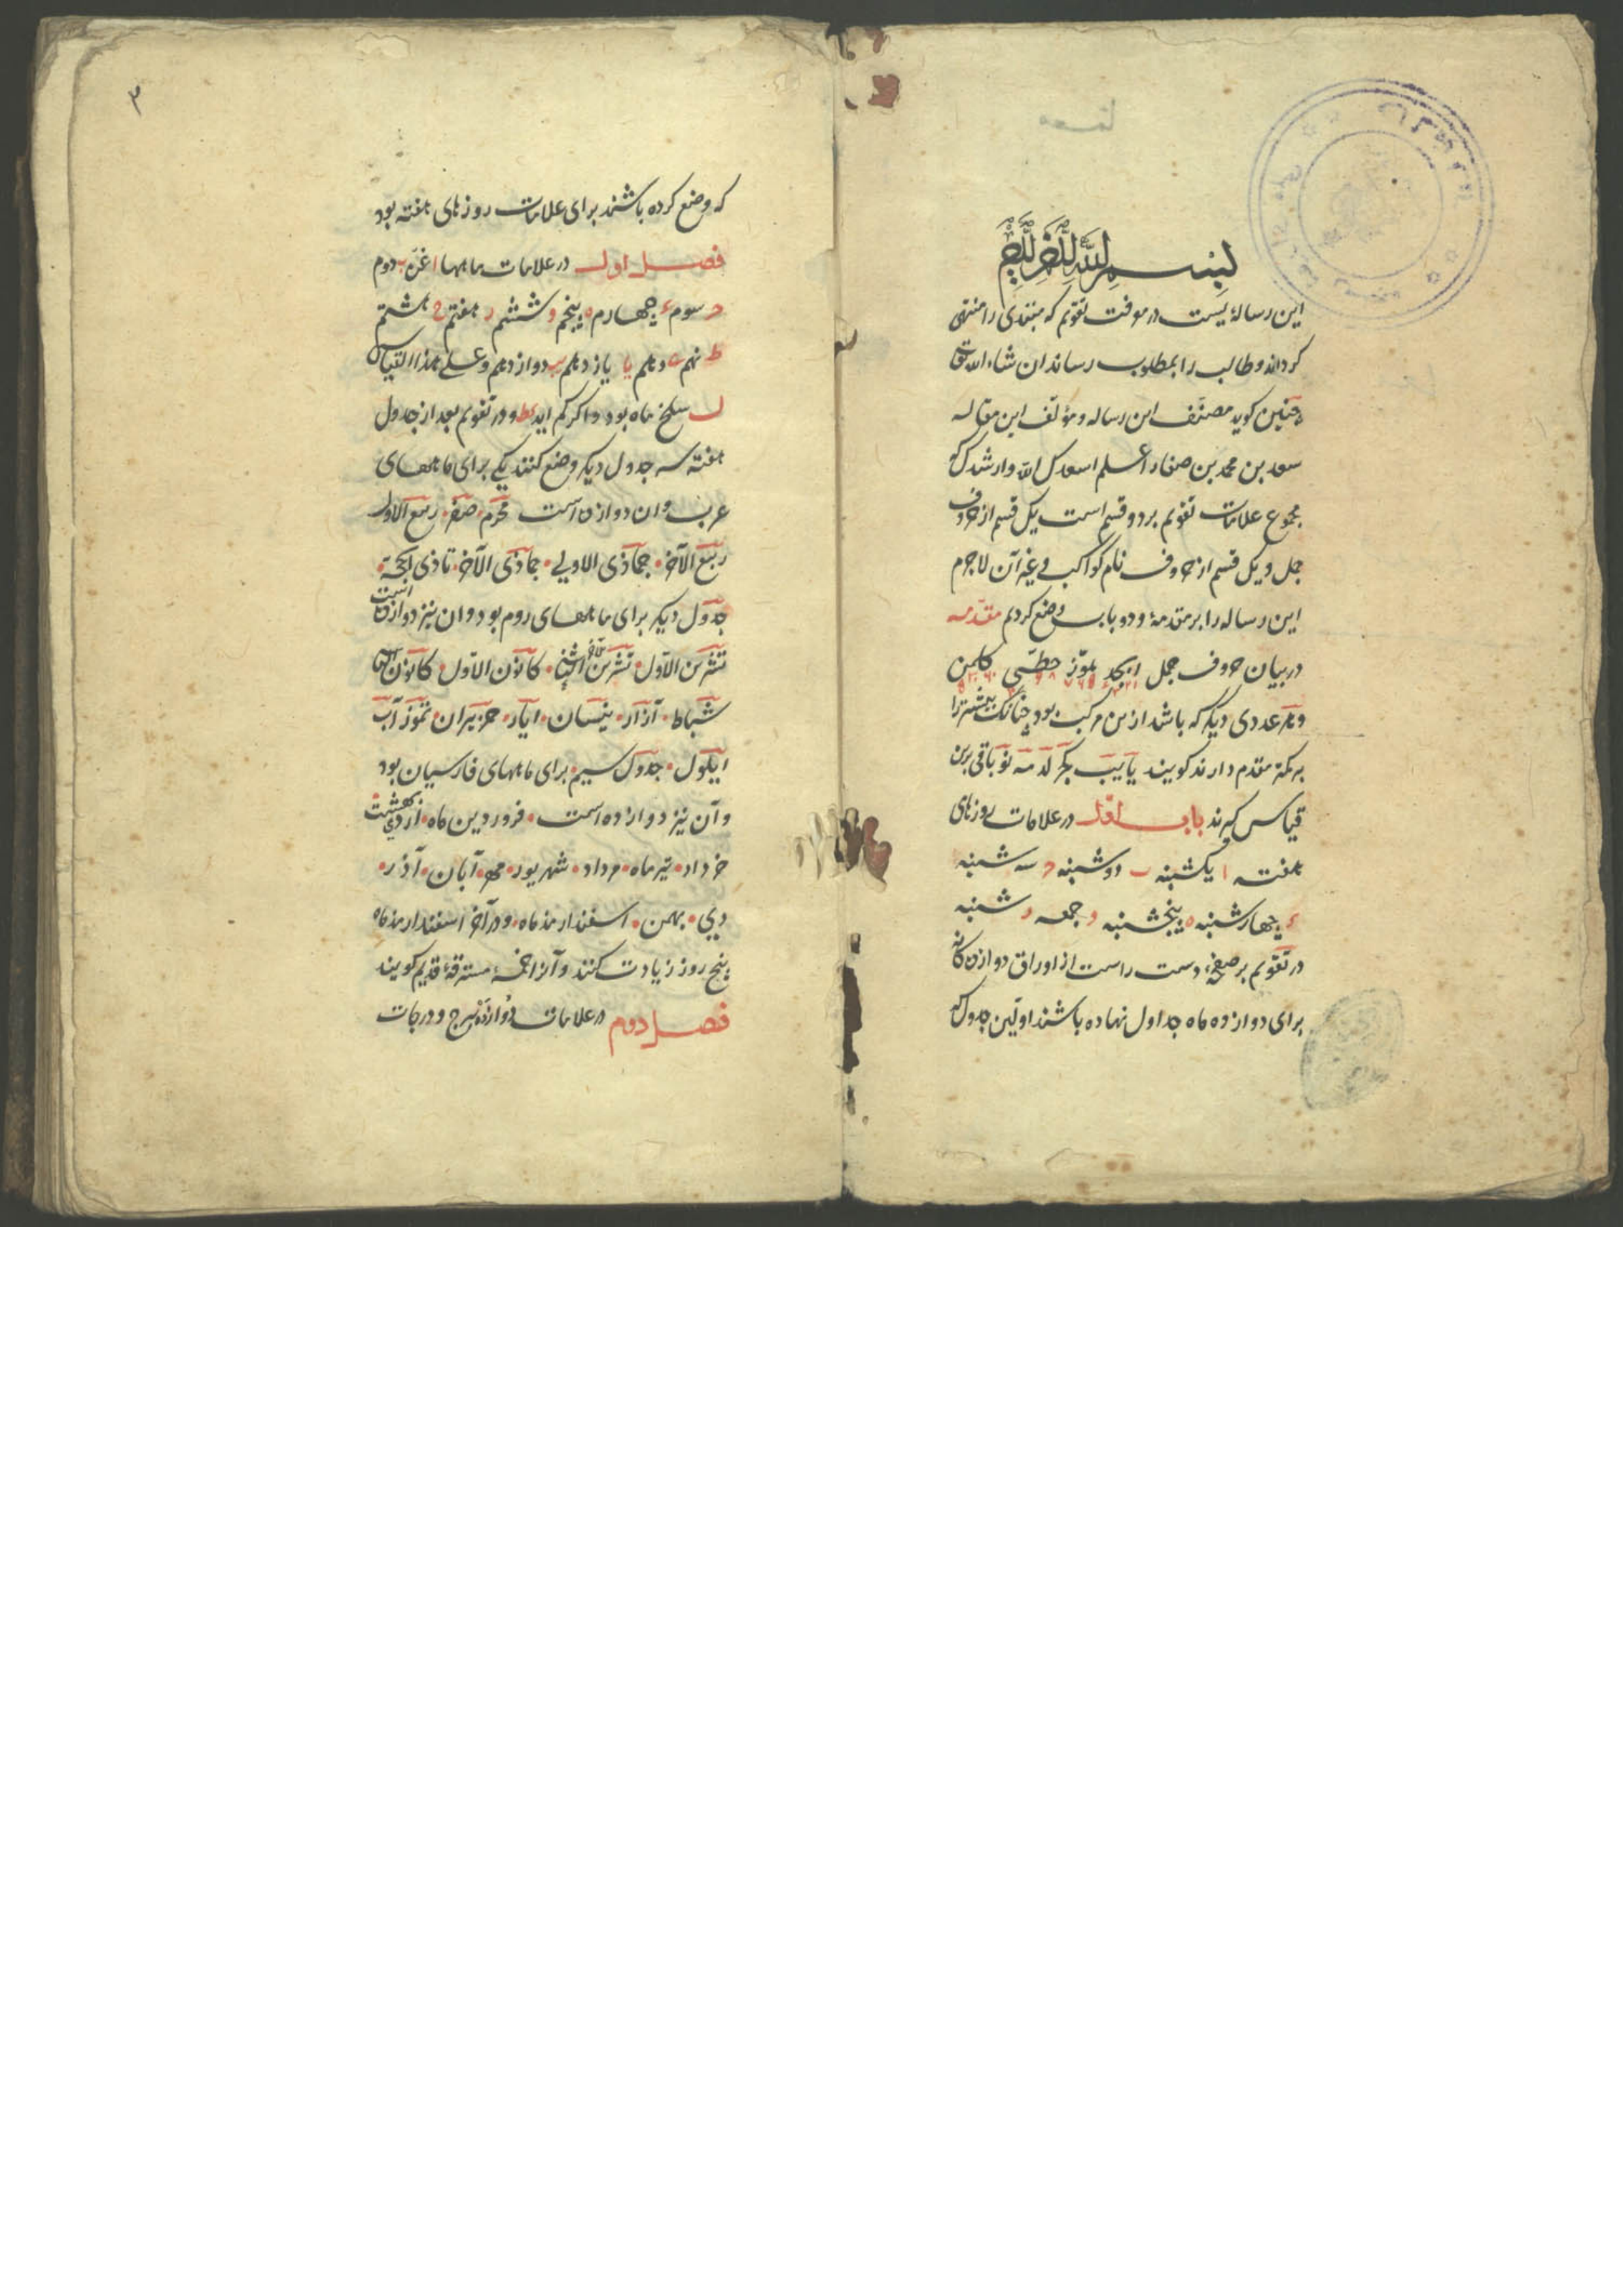 بسم الله الرحمن الرحیم
این رساله‌ٔ یست در معرفت تقویم که مبتدی را منتهی
کرداند و طالب را بمطلوب رساند ان شاء الله تعالی
چنین کوید مصنّف این رساله و مؤلّف این مقاله
سعد بن محمد بن صفار اعلم اسعدک الله وارشدک که
مجموع علامات تقویم بر دو قسم است یک قسم از حروف
جمل و یک قسم از حروف نام کواکب و غیر آن لاجرم
این رساله را بر مقدمهٔ و دو باب وضع کردم مقدّمه
در بیان حروف جمل ابجد هوّز حطّی کلمن
و هر عددی دیکر که باشد از من مرکب بود چنانک بیشتر را
بر کمتر مقدم دارند کویند یا یب یج کر لد مه نو باقی برین
قیاس کیرند باب اوّل در علامات روزهای
هفته ا یکشبنه ب دوشبنه ح سه شبنه
ء چهارشبنه ه پنجشبنه و جمعه ر شبنه
در تقویم بر صفحهٔ دست راست از اوراق دوازده کانه
برای دوازده ماه جداول نهاده باشند اوّلین جدول که
۲
که وضع کرده باشند برای علامات روزهای هفته بود
فصل اول در علامات ماهها ا غرّه ب دوم
ح سوم ء چهارم ه پنجم و ششم ر هفتم ح هشتم
ط نهم ی دهم یا یازدهم یب دوازدهم و علی هذا القیاس
ل سلخ ماه بود و اگر کم اید کط و در تقویم بعد از جدول
هفته سه جدول دیکر وضع کنند یکی برای ماههای
عرب و ان دوازده است محرّم صفر ربیع الاول
ربیع الآخر جمادَی الاولی جمادَی الآخر تا ذی الحجّة
جدول دیکر برای ماههای روم بود و ان نیز دوازده است
تشرین الاوّل تشرین الثانی کانون الاوّل کانون الثانی
شباط آزار نیسان ایار حزیران تموز آب
ایلول جدول سیم برای ماههای فارسیان بود
و آن نیز دوازده است فروردین ماه اردی بهشت
خرداد تیر ماه مرداد شهریور مهر آبان آذر
دی بهمن اسفندارمذ ماه و در آخر اسفندارمذ ماه
پنج روز زیادت کنند و آنرا خمسهٔ مسترقهٔ قدیم کویند
فصل دوم در علامات دوازده برج و درجات